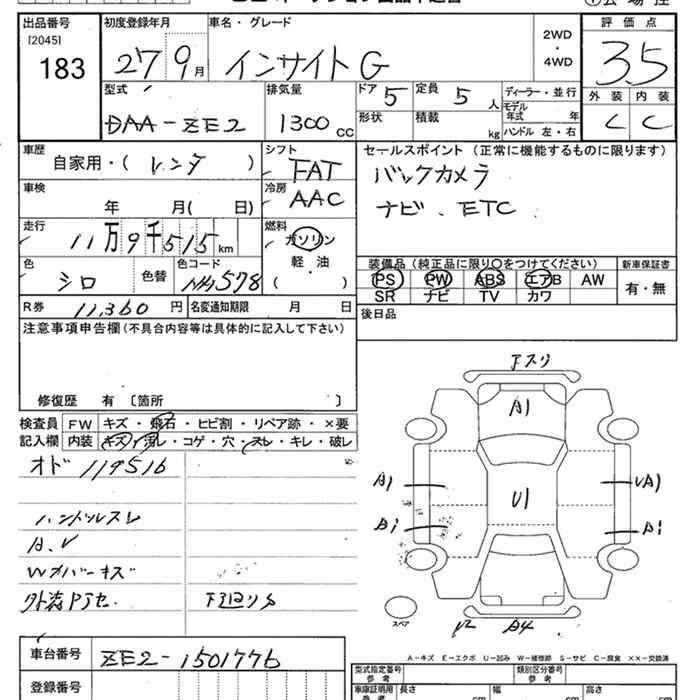 出品番号
[2045]
183
初度登録年月
27 9月
車名・グレード
インサイト G
2WD
・
4WD
評価点
3.5
外装 内装
C C
型式
DAA-ZE2
排気量
1300 CC
ドア 5
形状
定員 5 人
積載 kg
ディーラー・並行
モデル年式 年
ハンドル 左・右
車歴
自家用・( レンタ )
シフト
FAT
冷房
AAC
セールスポイント (正常に機能するものに限ります)
バックカメラ
ナビ、ETC
車検
年 月( 日)
走行
11万9千515km
燃料
ガソリン
軽・油
( )
色
シロ
色替
色コード
NH578
装備品 (純正品に限り○をつけてください)
PS PW ABS エアB AW
SR ナビ TV カワ
新車保証書
有・無
R券 11,360 円
名変通知期限 月 日
後日品
注意事項申告欄(不具合内容等は具体的に記入して下さい)
修復歴 有 〔箇所 〕
検査員
記入欄
FW キズ・飛石・ヒビ割・リペア跡・×要
内装 キズ・汚レ・コゲ・穴・スレ・キレ・破レ
オド 119516
ハンドルスレ
A.V
Wカバーキズ
下廻りサ
下スリ
A1
A1
UA1
U1
A1
A1
スペア
A4
A-キズ E-エクボ U-凹み W-補修跡 S-サビ C-腐食 ××-交換済
車台番号
ZE2-1501776
登録番号
型式指定番号
参考
類別区分番号
参考
車庫証明用
参考
長さ cm
幅 cm
高さ cm